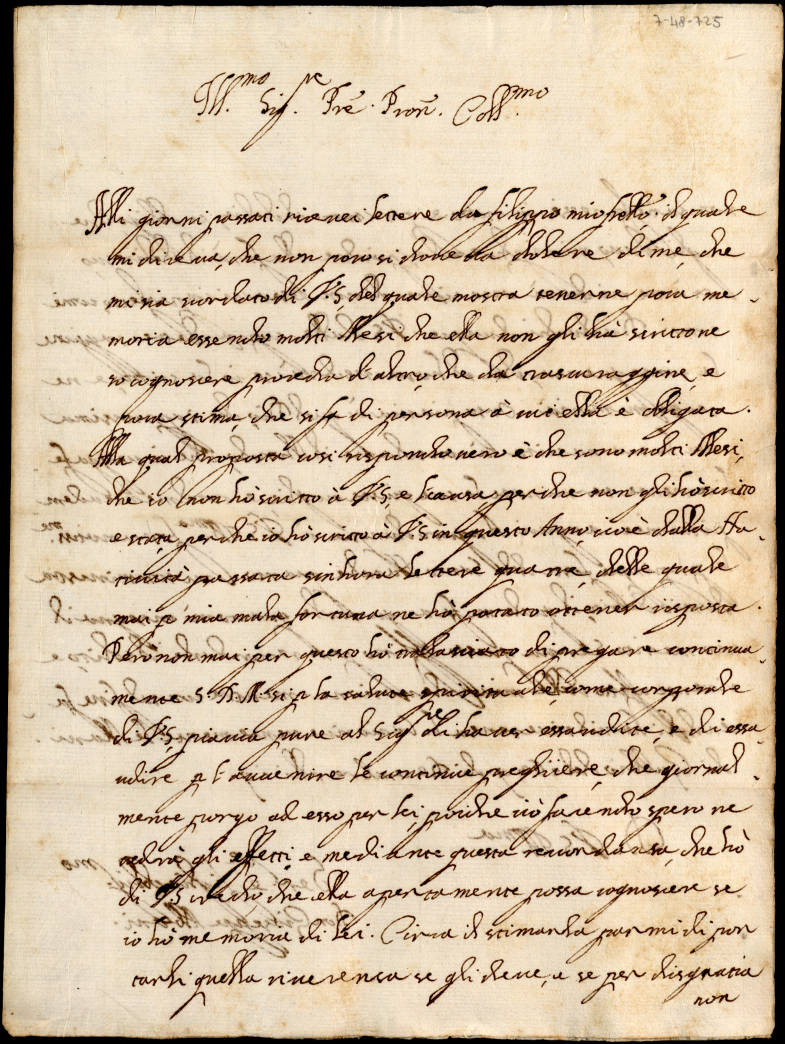 7-48-725
Ill.mo Sig.re Prē. Pron̄. Coll.mo
Alli giorni passati ricevei lettere da filippo mio frello. il quale
mi diceva, che non poco si doveva dolere di me, che
mi sia scordato di V.S. del quale mostra tenerne poca me-
moria essendo molti Mesi che ella non gli hà scritto ne
sò cognoscere proceda d'altro, che da trascuraggine, e
poca stima che si fa di persona à cui ella è obligata.
Alla qual proposta così rispondo vero è che sono molti Mesi,
che io non hò scritto à V.S, e la causa perche non gli hò scritto
e stata perche io hò scritto à V.S in questo Anno, cioè dalla Na-
tività passata sinhora lettere quatrè, delle quale
mai p mia mala fortuna ne hò potuto ottener risposta.
Però non mai per questo hò trallasciato di pregare continua-
mente S.D.M. si p la salute spirituale, come corporale
di V.S, piaccia pure al Sig.re di haver essaudite, e di essa-
udire p l'avvenire le continue preghiere, che giornal-
mente porgo ad esso per lei, poiche ciò facendo spero ne
vedrà gli effetti, e mediante questa recordansa, che hò
di V.S credo che ella apertamente possa cognoscere se
io hò memoria di lei. Circa il stimarla parmi di por
tarli quella riverensa se gli deve, e se per disgratia
non